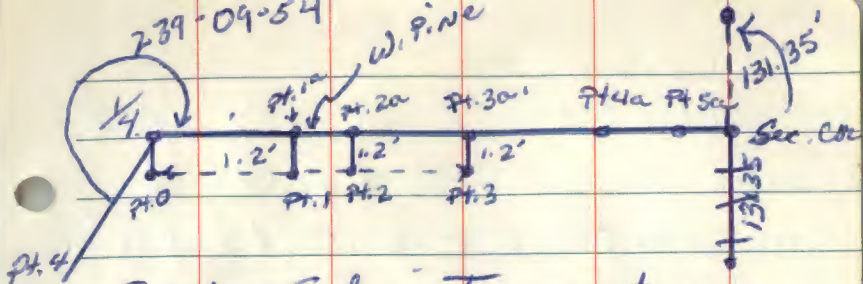 239-09-54
W. Pine
131.35'
1/4
Pt.1a
Pt.2a
Pt.3a
Pt4a
Pt5a
Sec. Cor
1.2'
1.2'
1.2'
Pt.0
Pt.1
Pt.2
Pt.3
131.35
Pt.4